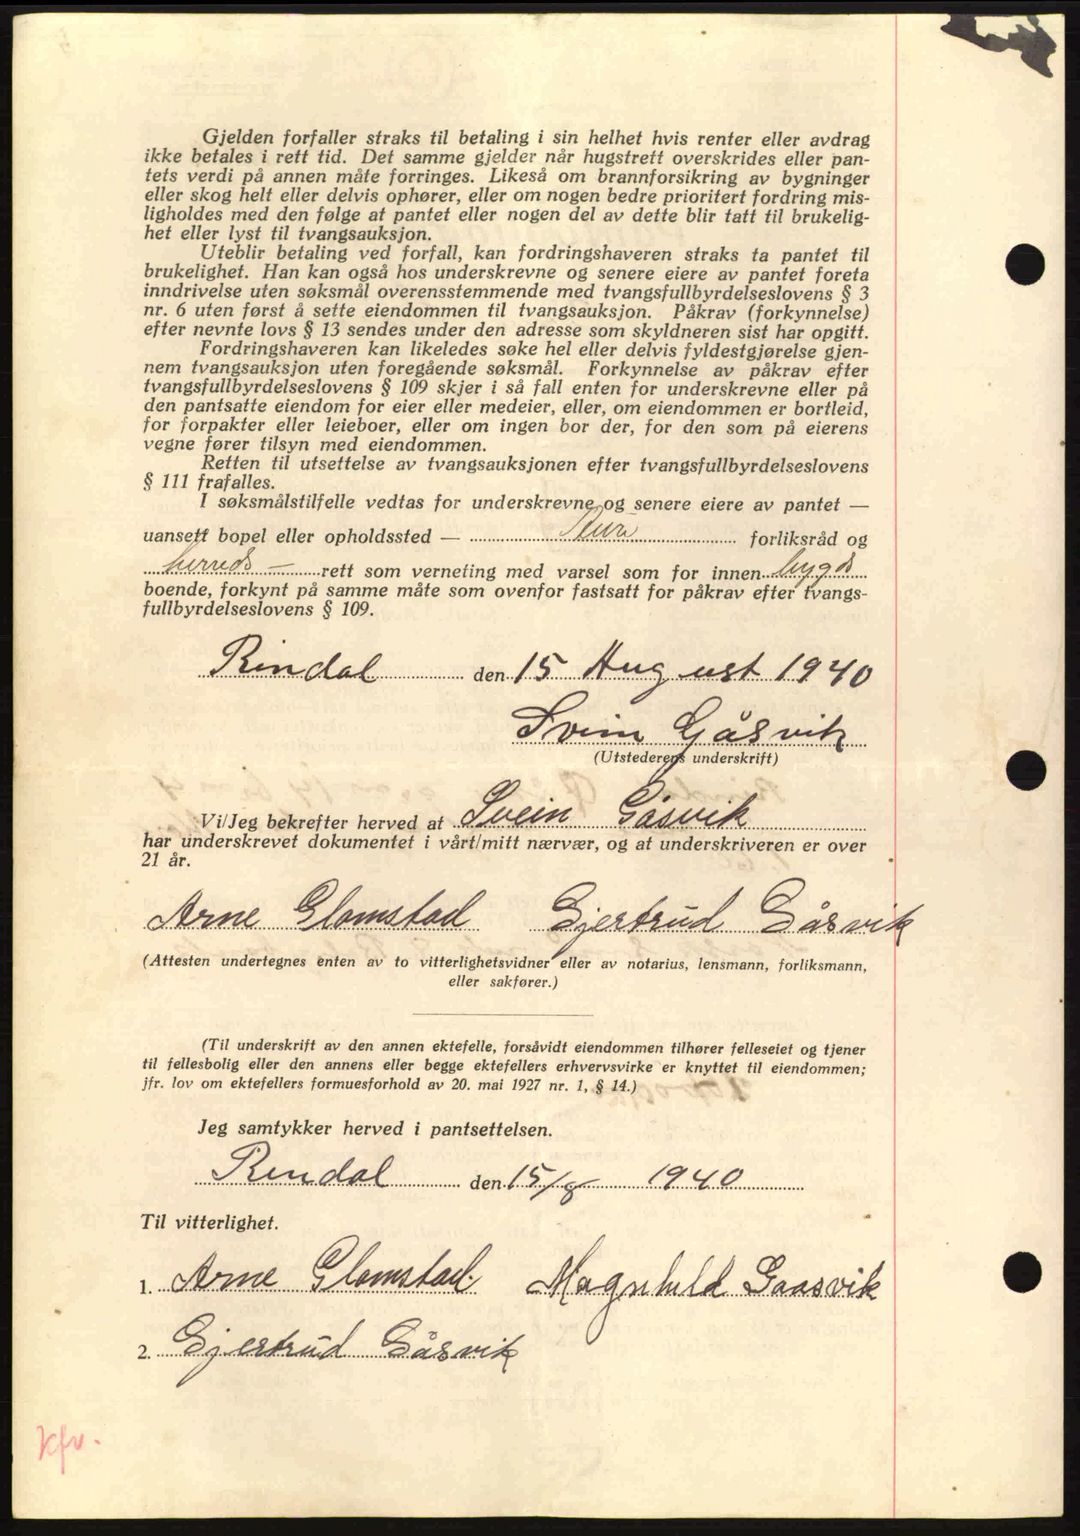 Gjelden forfaller straks til betaling i sin helhet hvis renter eller avdrag
ikke betales i rett tid. Det samme gjelder når hugstrett overskrides eller pan-
tets verdi på annen måte forringes. Likeså om brannforsikring av bygninger
eller skog helt eller delvis ophører, eller om nogen bedre prioritert fordring mis-
ligholdes med den følge at pantet eller nogen del av dette blir tatt til brukelig-
het eller lyst til tvangsauksjon.
Uteblir betaling ved forfall, kan fordringshaveren straks ta pantet til
brukelighet. Han kan også hos underskrevne og senere eiere av pantet foreta
inndrivelse uten søksmål overensstemmende med tvangsfullbyrdelseslovens § 3
nr. 6 uten først å sette eiendommen til tvangsauksjon. Påkrav (forkynnelse)
efter nevnte lovs § 13 sendes under den adresse som skyldneren sist har opgitt.
Fordringshaveren kan likeledes søke hel eller delvis fyldestgjørelse gjen-
nem tvangsauksjon uten foregående søksmål. Forkynnelse av påkrav efter
tvangsfullbyrdelseslovens § 109 skjer i så fall enten for underskrevne eller på
den pantsatte eiendom for eier eller medeier, eller, om eiendommen er bortleid,
for forpakter eller leieboer, eller om ingen bor der, for den som på eierens
vegne fører tilsyn med eiendommen.
Retten til utsettelse av tvangsauksjonen efter tvangsfullbyrdelseslovens
§ 111 frafalles.
I søksmålstilfelle vedtas for underskrevne og senere eiere av pantet —
uansett bopel eller opholdssted — forliksråd og
herreds — rett som verneting med varsel som for innen bygds
boende, forkynt på samme måte som ovenfor fastsatt for påkrav efter tvangs-
fullbyrdelseslovens § 109.
Rindal den 15 August 1940
Svein Gåsvik
(Utstederens underskrift)
Vi/Jeg bekrefter herved at Svein Gåsvik
har underskrevet dokumentet i vårt/mitt nærvær, og at underskriveren er over
21 år.
Arne Glomstad Gjertrud Gåsvik
(Attesten undertegnes enten av to vitterlighetsvidner eller av notarius, lensmann, forliksmann,
eller sakfører.)
(Til underskrift av den annen ektefelle, forsåvidt eiendommen tilhører felleseiet og tjener
til fellesbolig eller den annens eller begge ektefellers erhvervsvirke er knyttet til eiendommen;
jfr. lov om ektefellers formuesforhold av 20. mai 1927 nr. 1, § 14.)
Jeg samtykker herved i pantsettelsen.
Rindal den 15/8 1940
Til vitterlighet.
1. Arne Glomstad. Magnhild Gaasvik
2. Gjertrud Gåsvik
kfv.